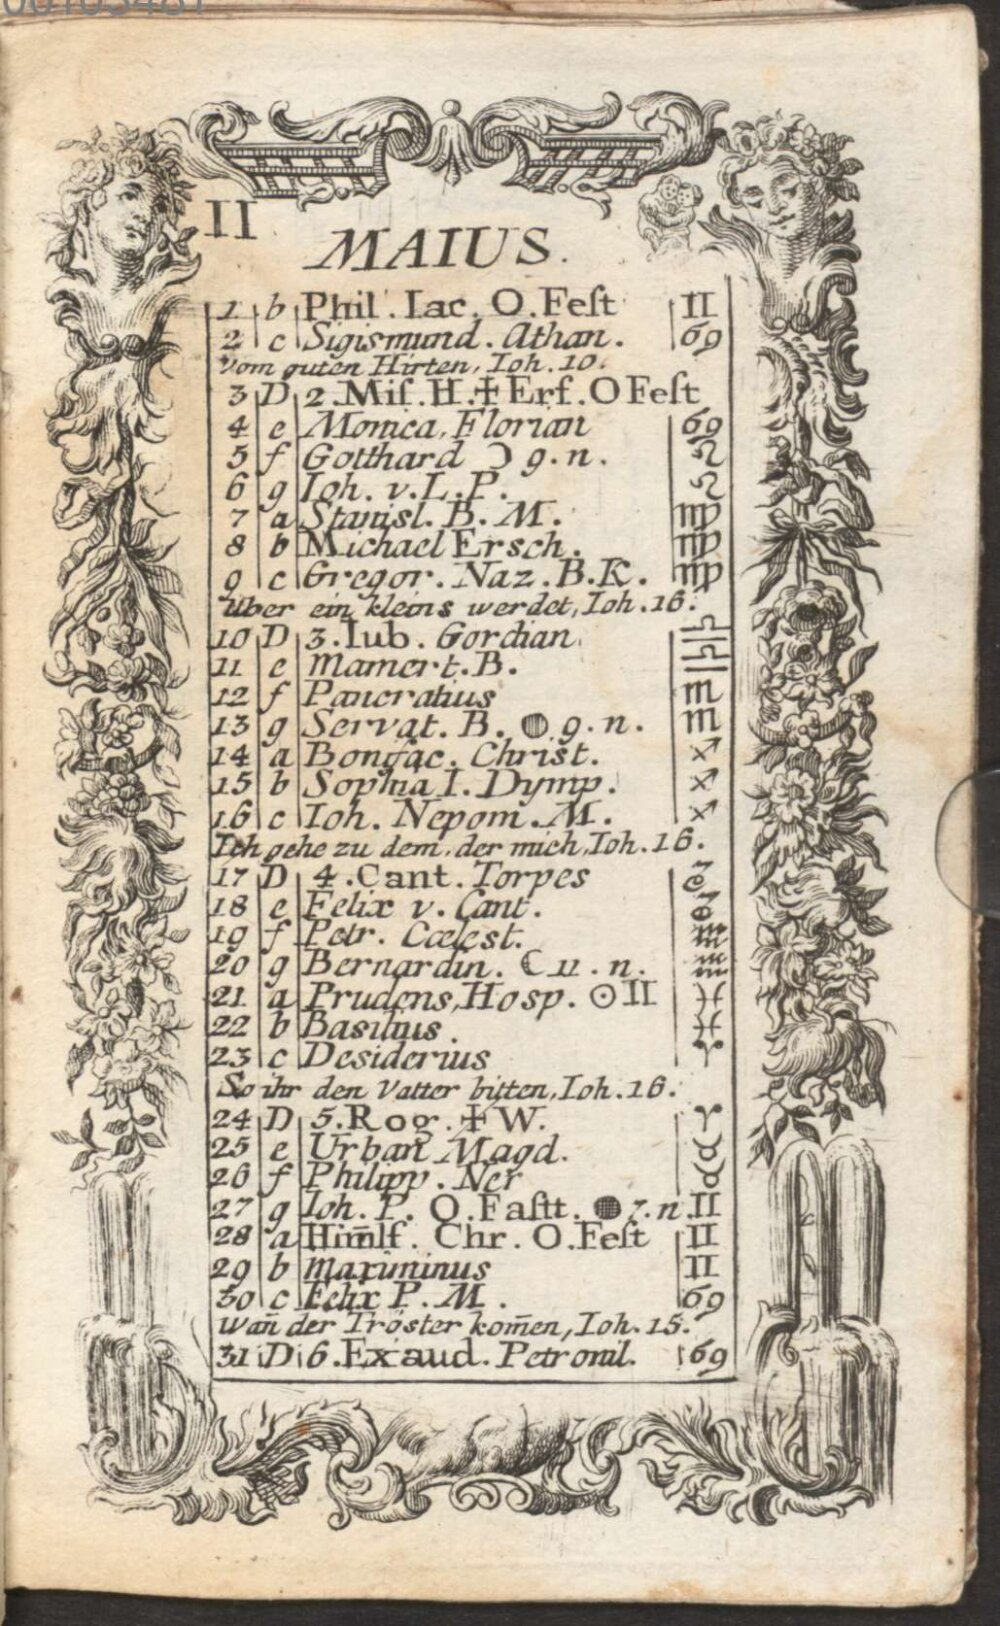 00103481
II
MAIUS.
1 b Phil. Iac. O. Feſt II
2 c Sigismund. Athan. 69
Vom guten Hirten, Ioh. 10.
3 D 2. Miſ. H. ✠ Erf. O Feſt
4 e Monica, Florian 69
5 f Gotthard ☽ 9. n. ♌
6 g Ioh. v. L. P. ♌
7 a Stanisl. B. M. ♍
8 b Michael Ersch. ♍
9 c Gregor. Naz. B. K. ♍
Uber ein kleins werdet, Ioh. 16.
10 D 3. Iub. Gordian ♎
11 e Mamert. B. ♎
12 f Pancratius ♏
13 g Servat. B. 9. n. ♏
14 a Bonifac. Christ. ♐
15 b Sophia I. Dymp. ♐
16 c Ioh. Nepom. M. ♐
Ich gehe zu dem, der mich, Ioh. 16.
17 D 4. Cant. Torpes ♑
18 e Felix v. Cant. ♑
19 f Petr. Cœlest. ♒
20 g Bernardin. ☾ 11. n. ♒
21 a Prudens, Hosp. ☉ II ♓
22 b Basilius. ♓
23 c Desiderius ♈
So ihr den Vatter bitten, Ioh. 16.
24 D 5. Rog. ✠ W. ♈
25 e Urban Magd. ♉
26 f Philipp. Ner ♉
27 g Ioh. P. O. Faſtt. ● 7. n. II
28 a Him̄lf. Chr. O. Feſt II
29 b Maximinus II
30 c Felix P. M. 69
Wan̄ der Tröster kom̄en, Ioh. 15.
31 D 6. Exaud. Petronil. 69